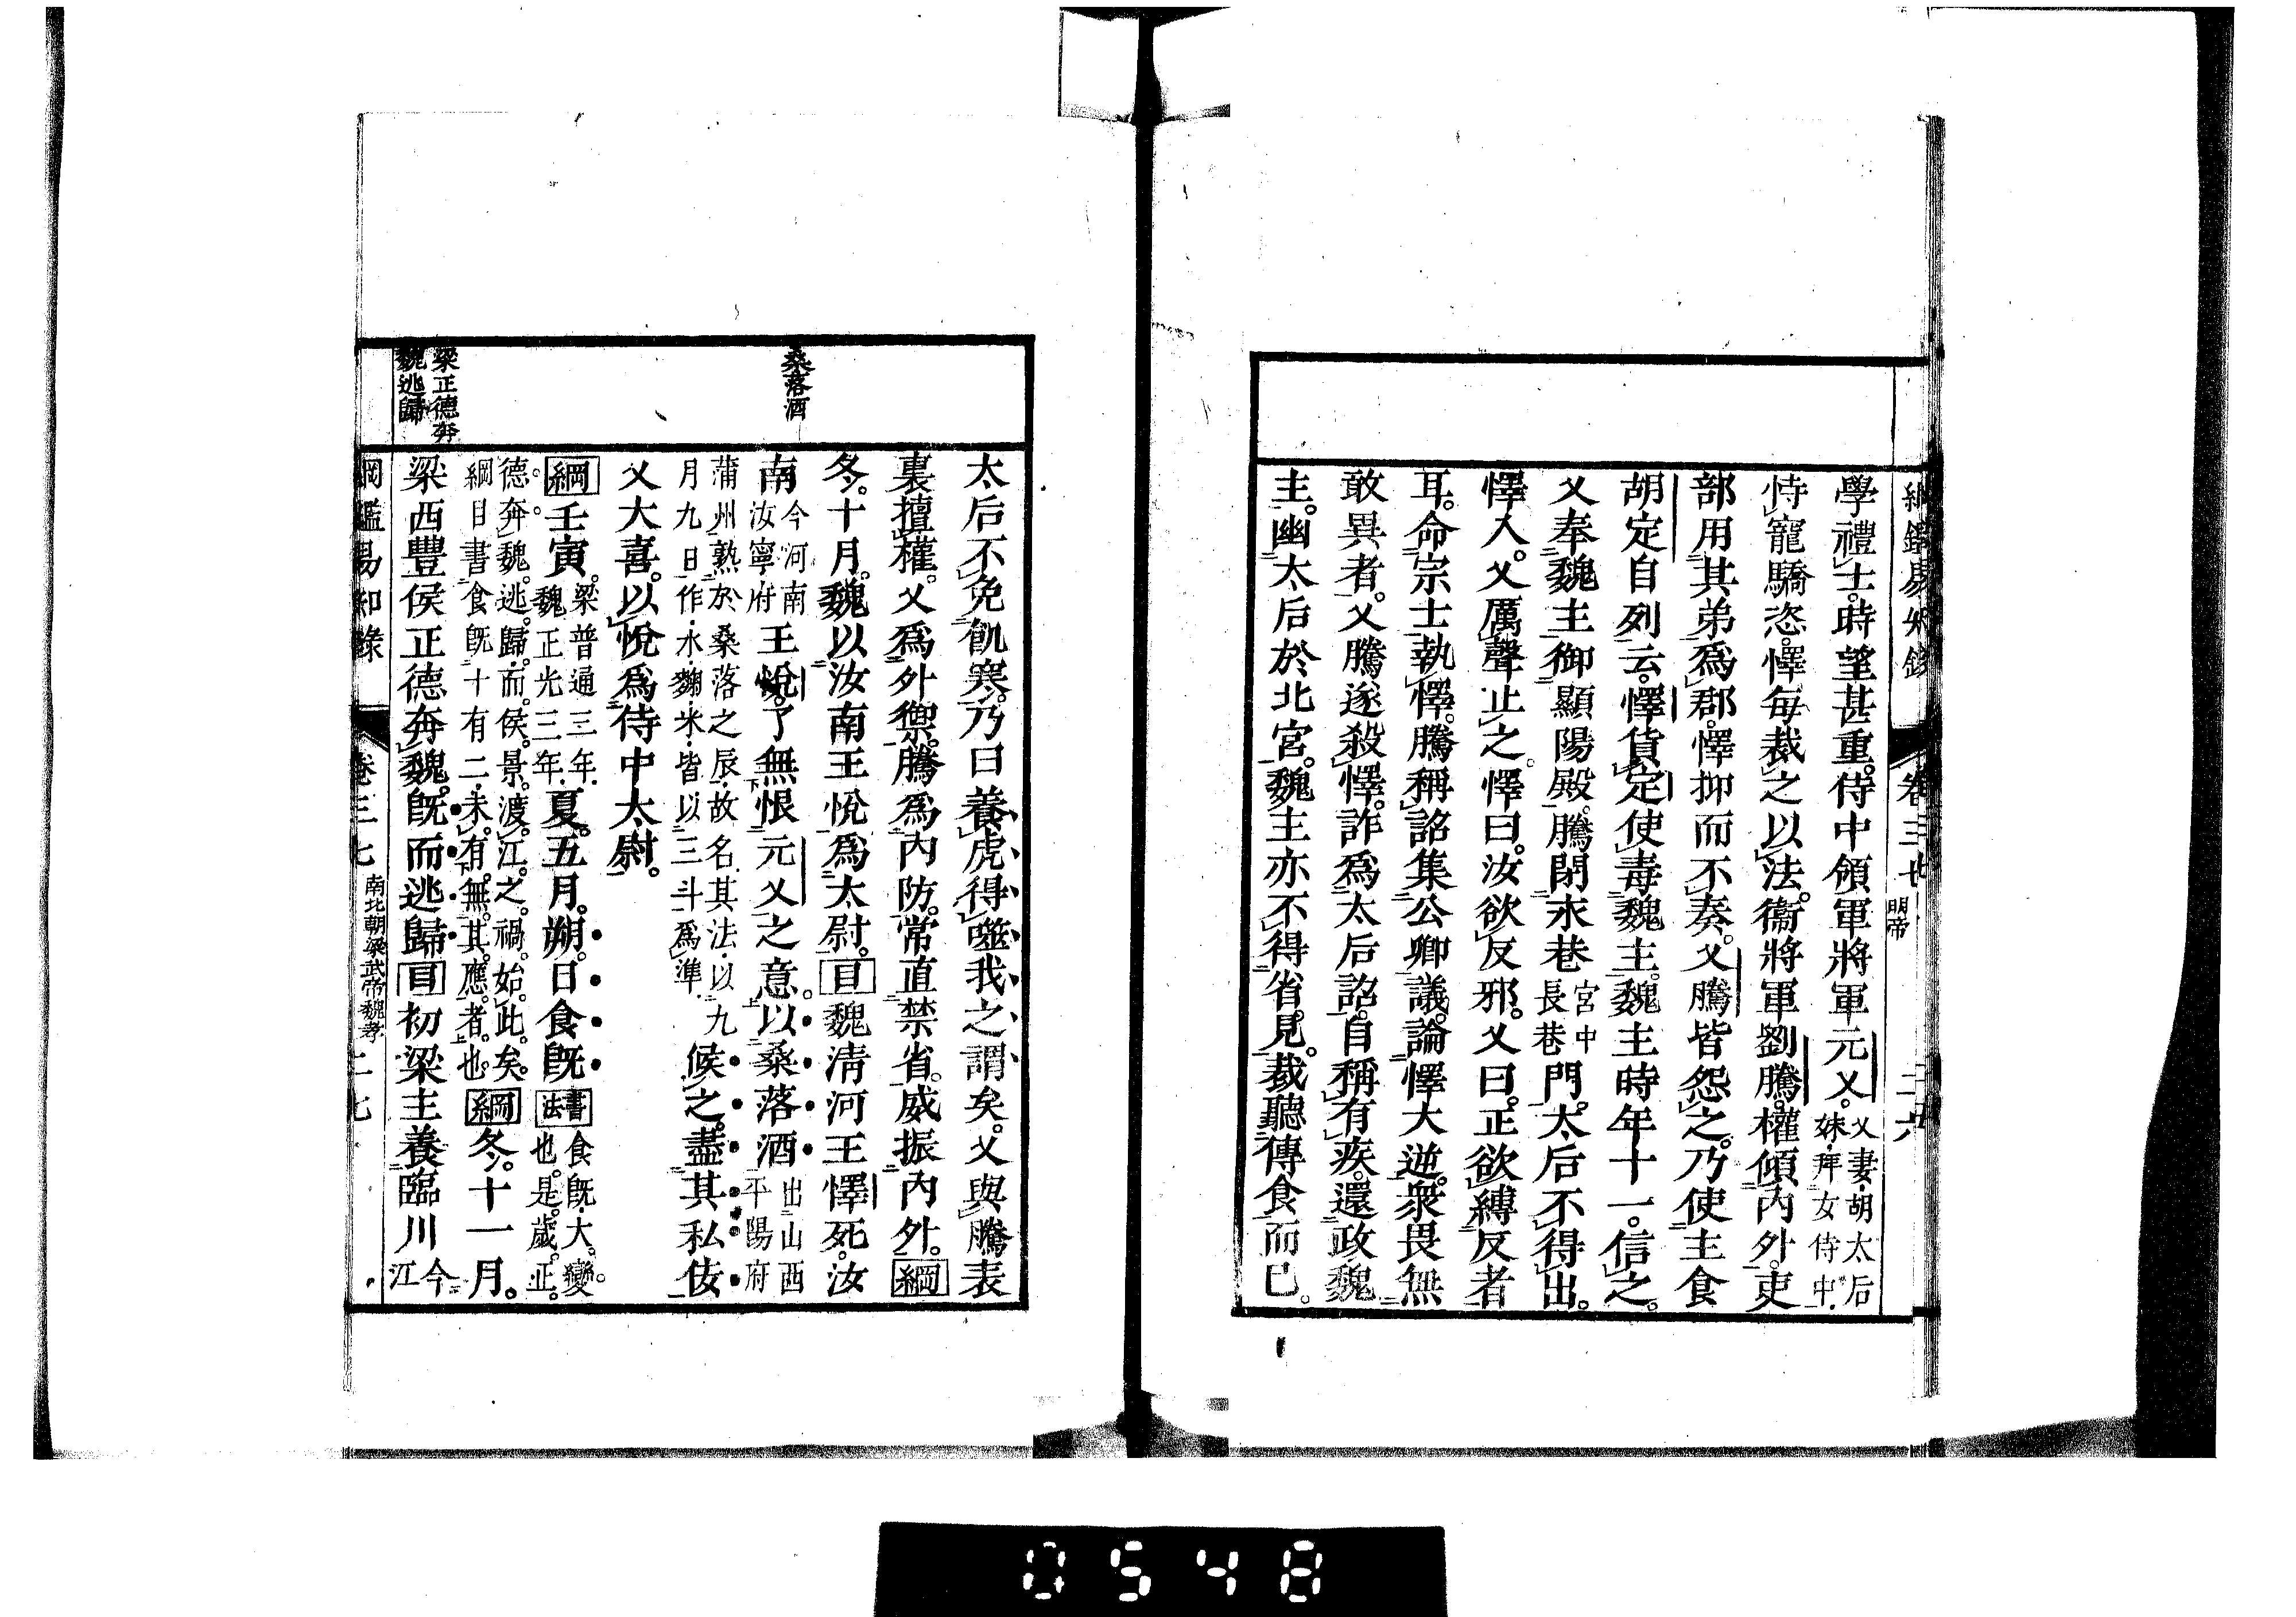 綱鑑易知錄 卷三七 明帝 二六
學禮士時望甚重侍中領軍將軍元乂乂妻胡太后妹拜女侍中
恃寵驕恣懌每裁之以法衞將軍劉騰權傾內外吏
部用其弟爲郡懌抑而不奏乂騰皆怨之乃使主食
胡定自列云懌貨定使毒魏主魏主時年十一信之
乂奉魏主御顯陽殿騰閉永巷宮中長巷門太后不得出
懌入乂厲聲止之懌曰汝欲反邪乂曰正欲縛反者
耳命宗士執懌騰稱詔集公卿議論懌大逆衆畏無
敢異者乂騰遂殺懌詐爲太后詔自稱有疾還政魏
主幽太后於北宮魏主亦不得省見裁聽傳食而已
太后不免飢寒乃曰養虎得噬我之謂矣乂與騰表
裏擅權乂爲外禦騰爲內防常直禁省威振內外綱
桑落酒
冬十月魏以汝南王悅爲太尉目魏淸河王懌死汝
南今河南汝寧府王悅了無恨元乂之意以桑落酒出山西平陽府
蒲州熟於桑落之辰故名其法以九月九日作水麴米皆以三斗爲準候之盡其私佞
乂大喜以悅爲侍中太尉
綱壬寅梁普通三年魏正光三年夏五月朔日食旣書法食旣大變也是歲正
德奔魏逃歸而侯景渡江之禍始此矣綱目書食旣十有二未有無其應者也綱冬十一月
梁正德奔
魏逃歸
梁西豐侯正德奔魏旣而逃歸目初梁主養臨川今江
綱鑑易知錄 卷三七 南北朝梁武帝魏孝 二七
0548